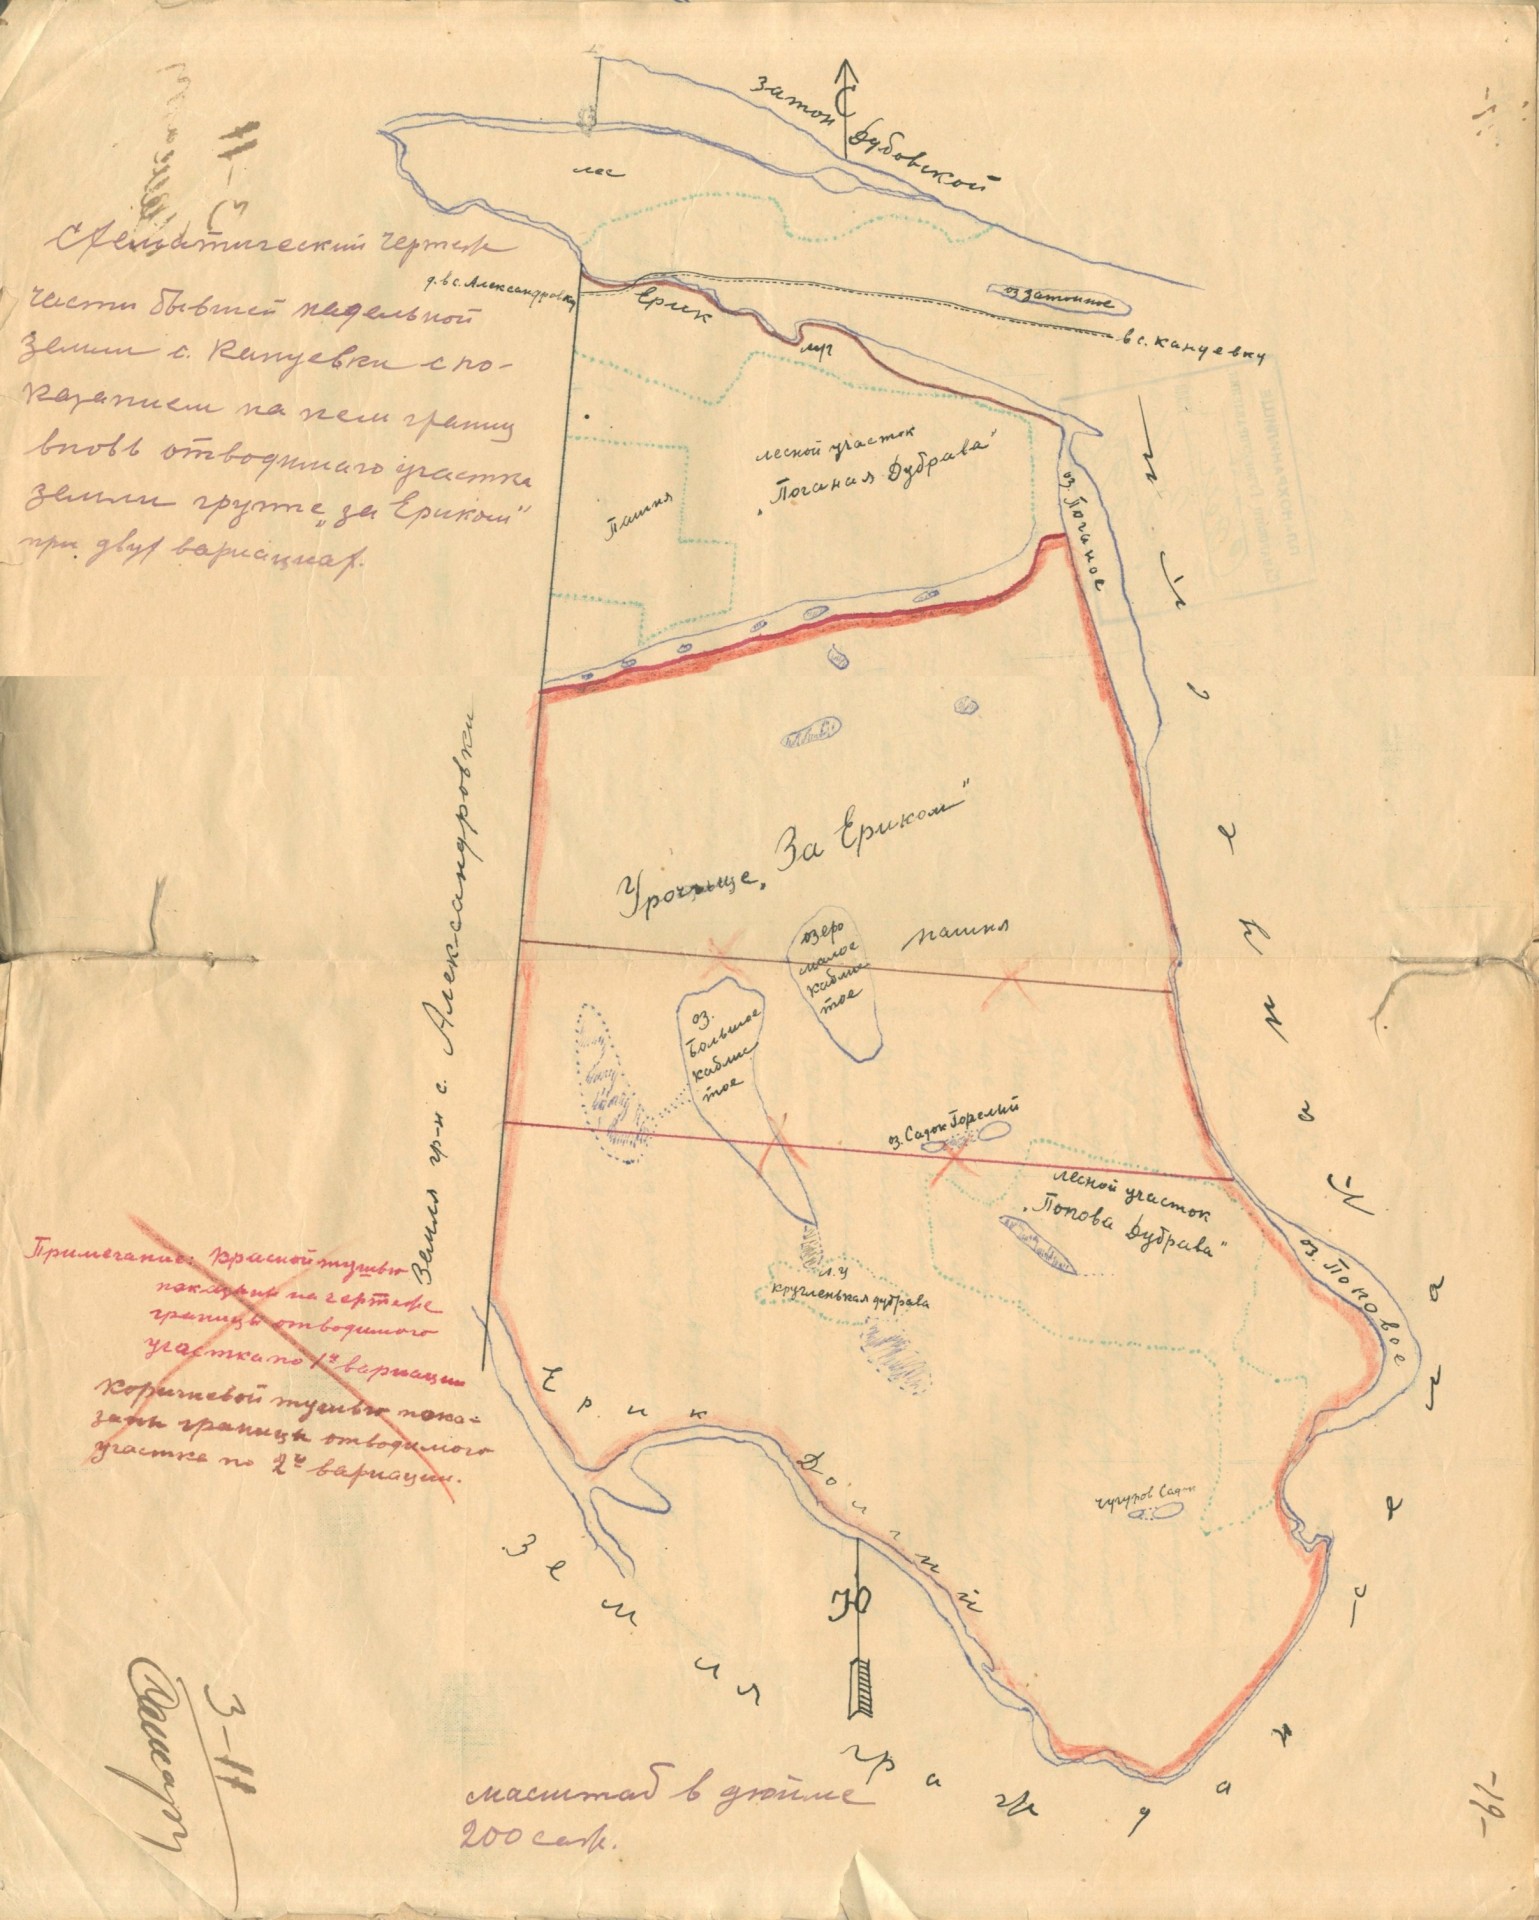 Затон Дубовской
С
лес
Схематический чертеж
части бывшей надельной
земли с. Кануевки с по-
казанием на нем границ
вновь отводимаго участка
земли группе „за Ериком"
при двух вариациах.
д. в с. Александровку
Ерик
оз. затонное
в с. Кануевку
лесной участок
„Поганая Дубрава"
Пашня
оз. Поганое
Земля гр-н с. Александровки
Урочище „За Ериком"
пашня
озеро
малое
кабли-
тое
оз.
Большое
кабли-
тое
оз. Садок Горелый
лесной участок
„Попова Дубрава"
оз. Поповое
л. у
кругленькая дубрава
Примечание: Красной тушью
показаны на чертеже
границы отводимого
участка по 1й вариации
Коричневой тушью пока-
заны границы отводимого
участка по 2й вариации.
Ерик Долгий
чугунов Садок
Земля граждан
Ю
масштаб в дюйме
200 саж.
3-11
-19-